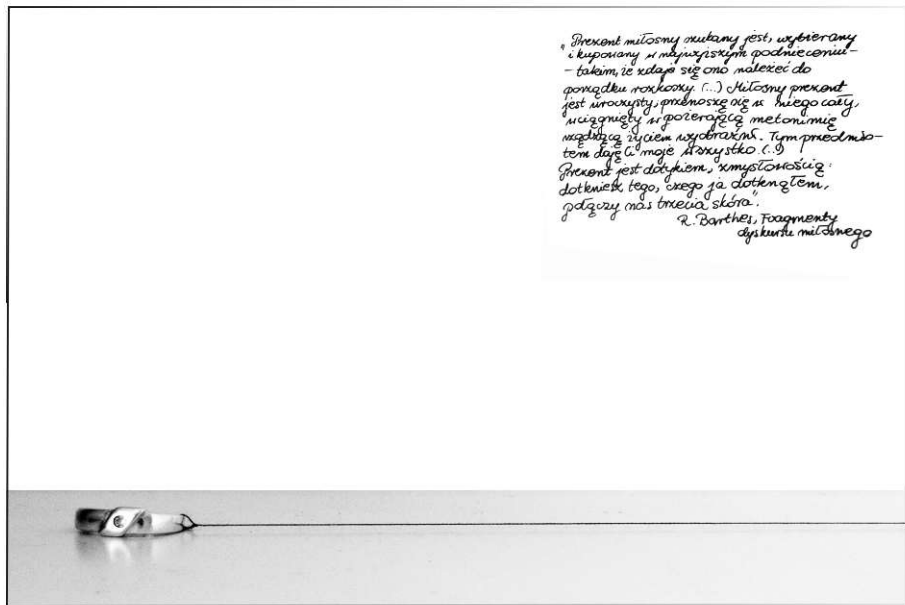 "Prezent miłosny szukany jest, wybierany
i kupowany w najwyższym podnieceniu -
- takim, że zdaje się ono należeć do
porządku rozkoszy. (...) Miłosny prezent
jest uroczysty, przenoszę się w niego cały,
wciągnięty w pożerającą metonimię
rządzącą życiem wyobraźni. Tym przedmio-
tem daję Ci moje wszystko. (...)
Prezent jest dotykiem, zmysłowością:
dotkniesz tego, czego ja dotknąłem,
połączy nas trzecia skóra".
R. Barthes, Fragmenty
dyskursu miłosnego